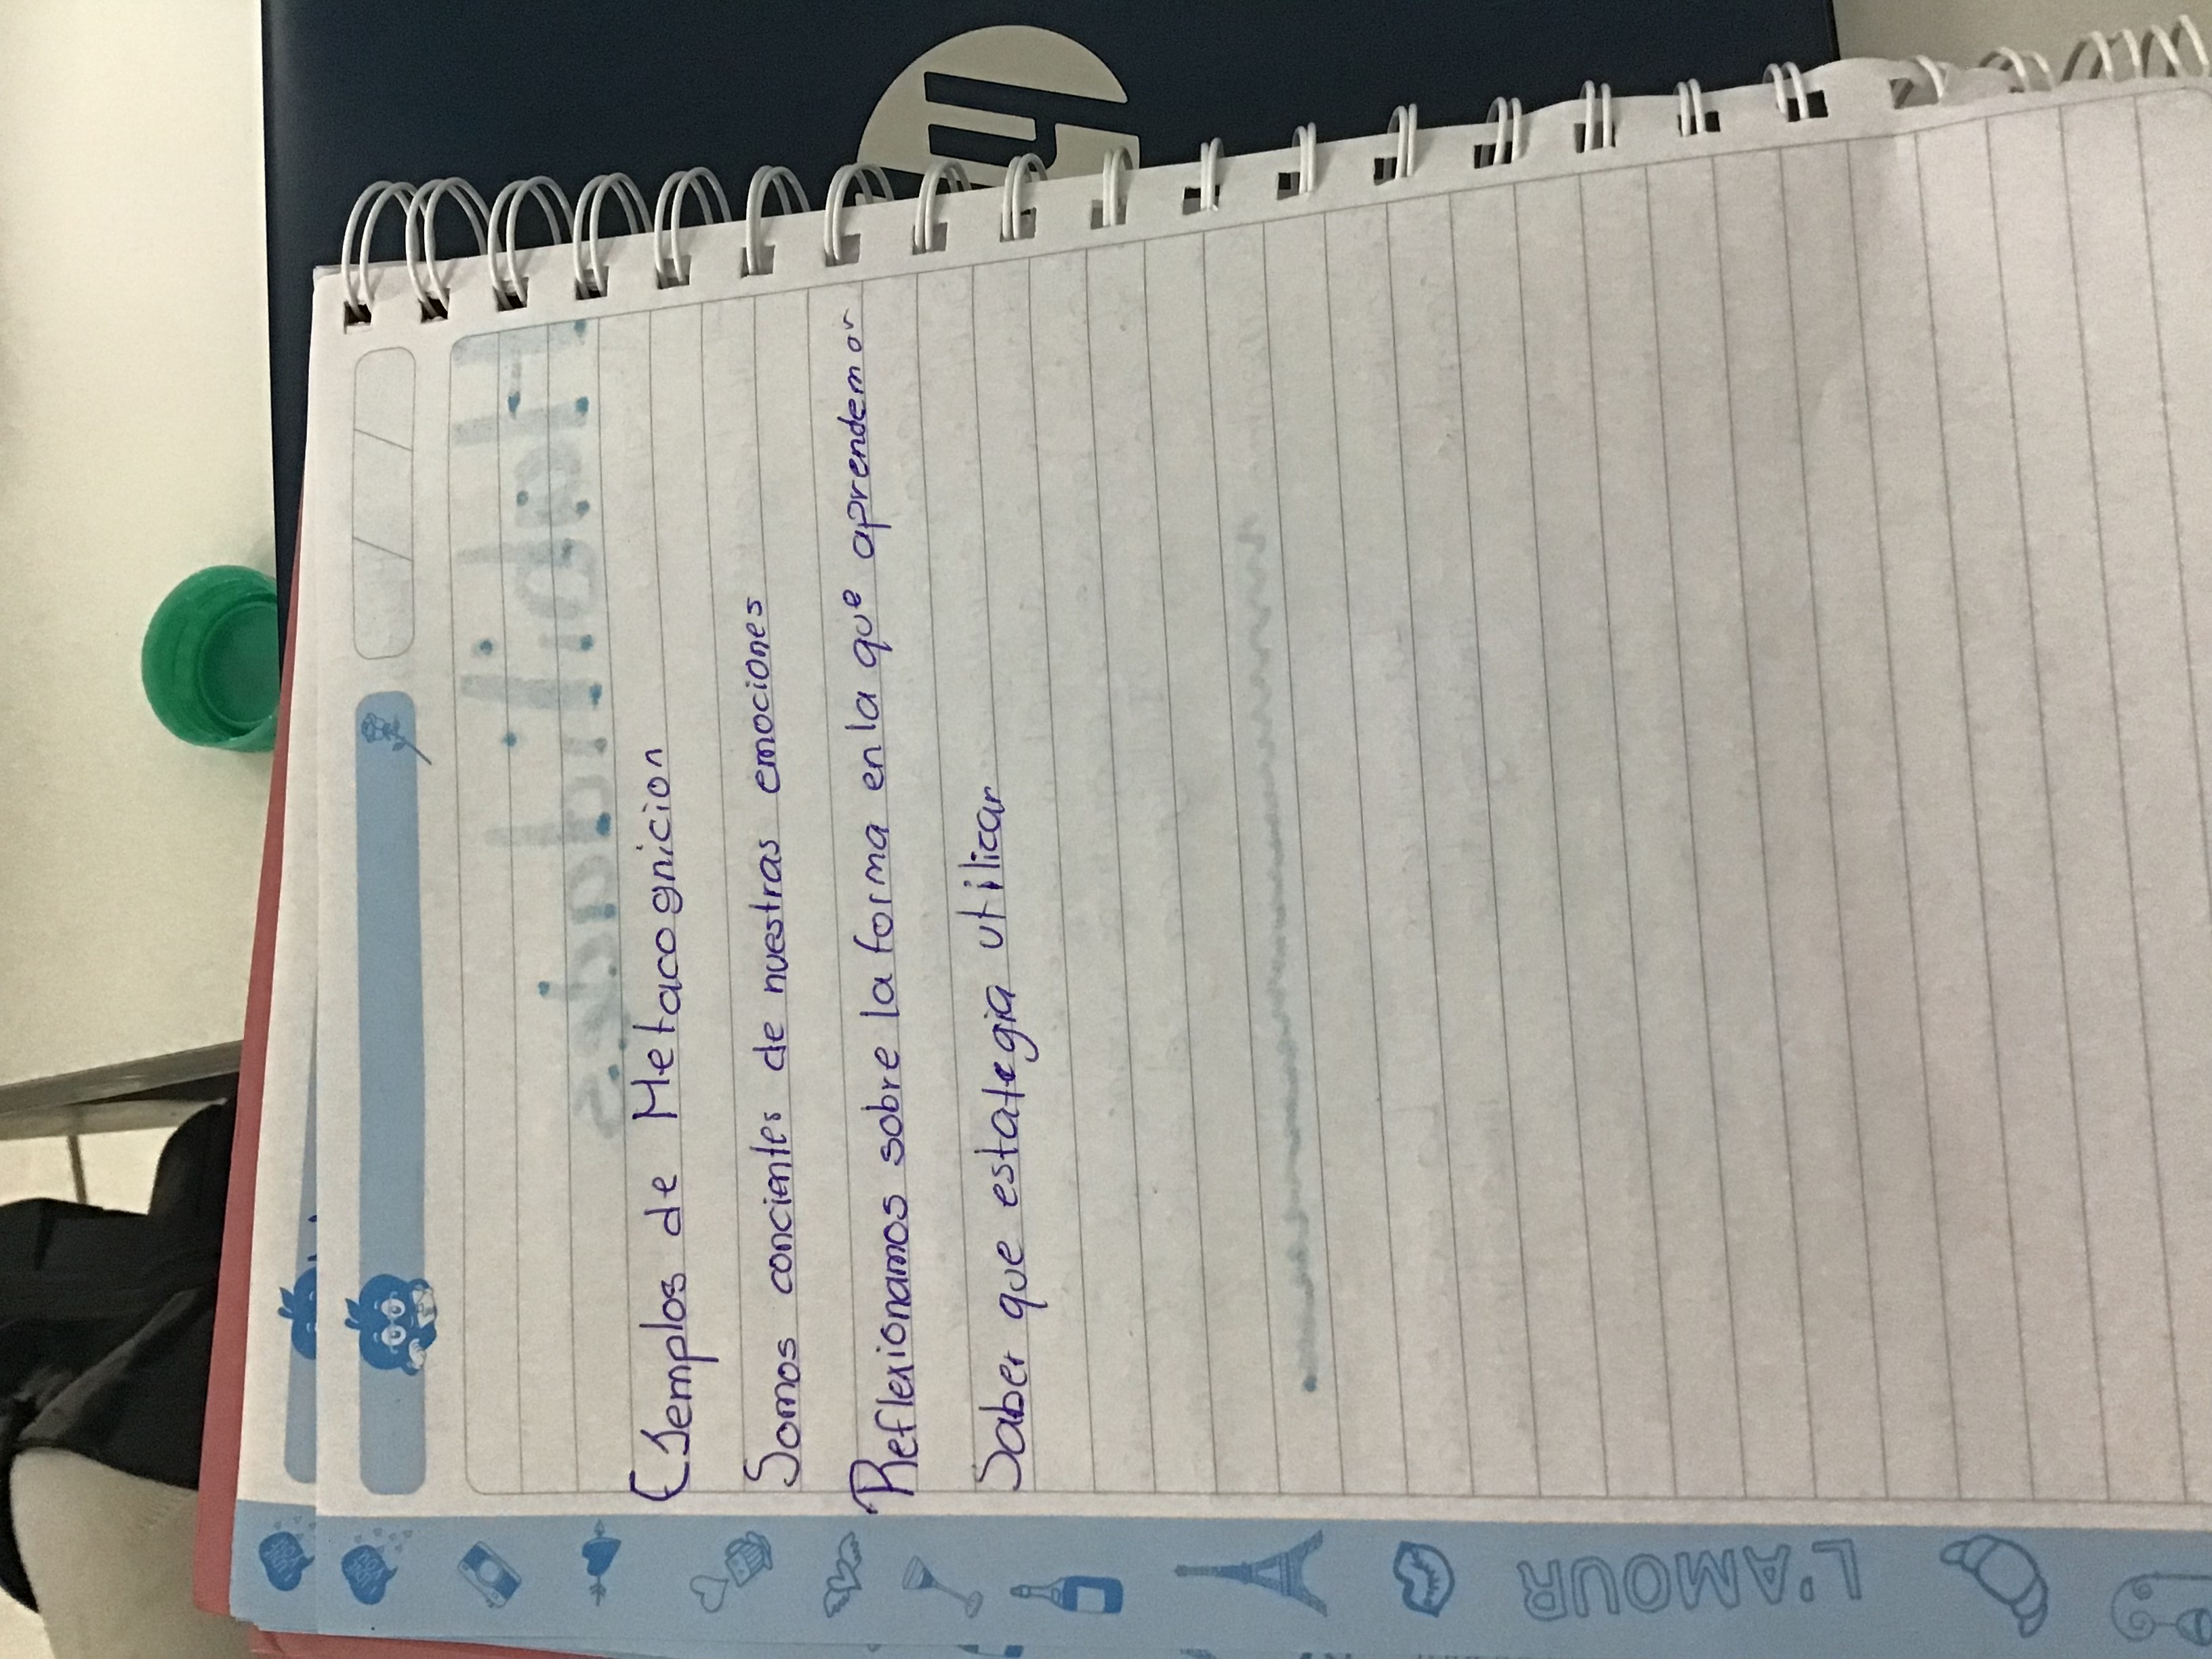 Ejemplos de Metacognicion
Somos concientes de nuestras emociones
Reflexionamos sobre la forma en la que aprendemos
Saber que estategia utilicar
L'AMOUR
hp